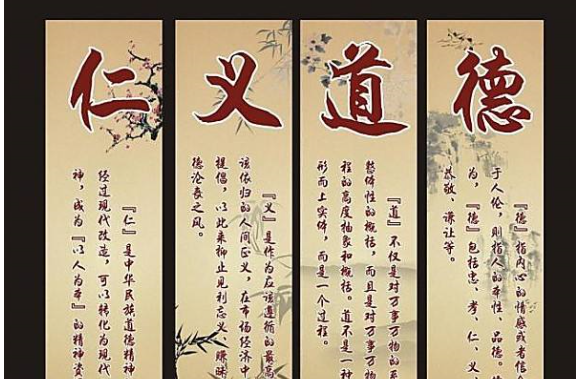 仁
义
道
德
『仁』是中华民族道德精神
经过现代改造，可以转化为现代
神，成为『以人为本』的精神资
『义』是作为应该遵循的最高
该依归的人间正义，在市场经济中
提倡，以此来抑止见利忘义、赚昧
德沦丧之风。
『道』不仅是对万事万物的系
整体性的概括，而且是对万事万物
程的高度抽象和概括。道不是一种
形而上实体，而是一个过程。
『德』指内心的情感或者信
于人伦，则指人的本性、品德。
为，『德』包括忠、孝、仁、义
恭敬、谦让等。